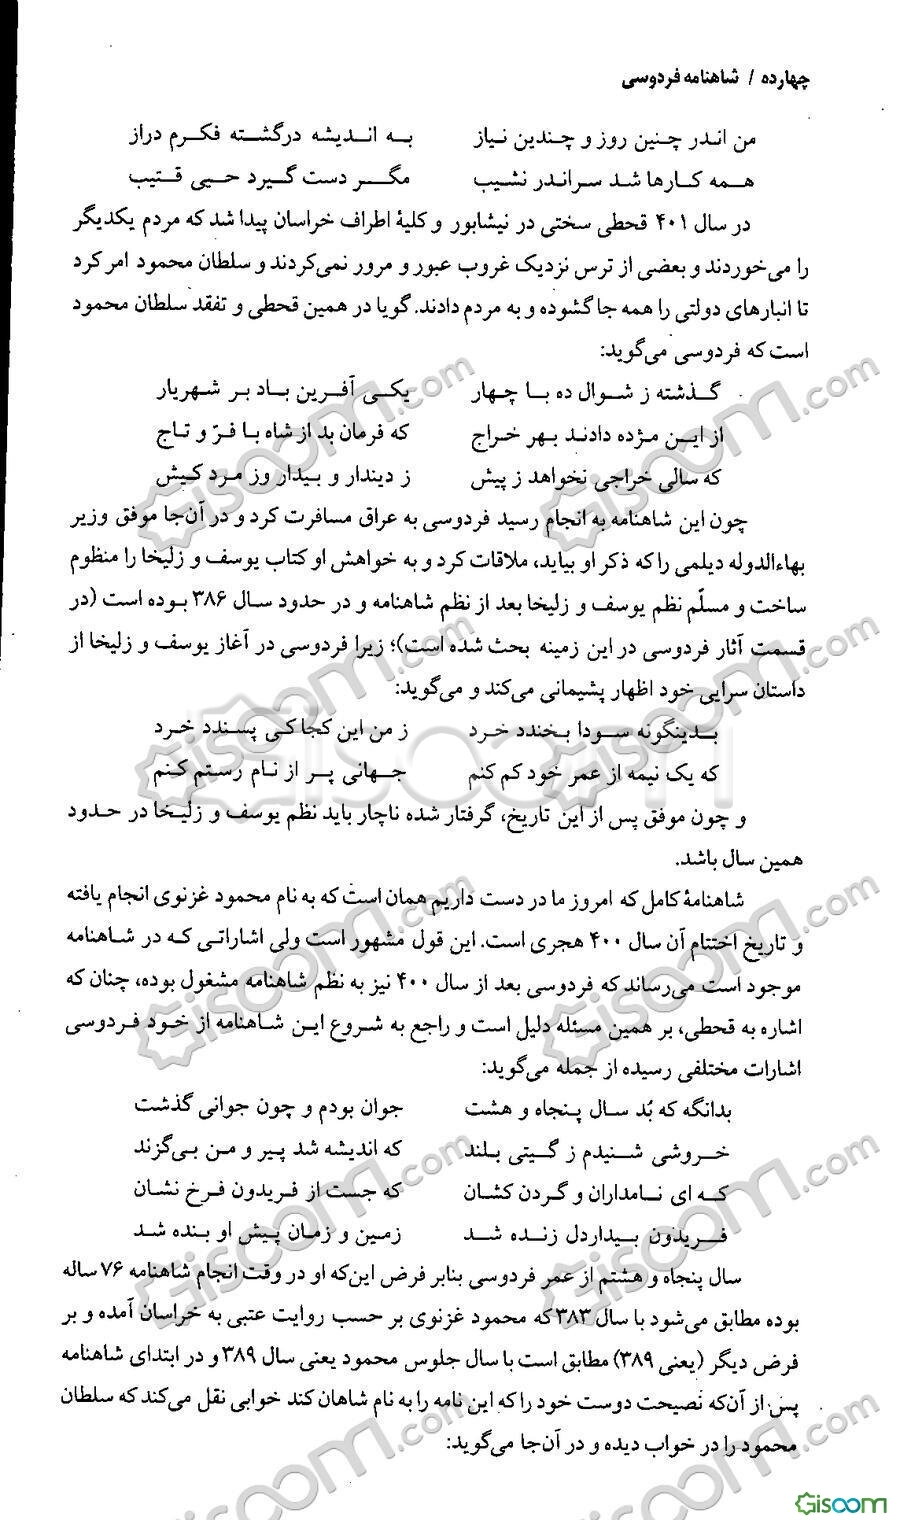 چهارده / شاهنامه فردوسی
من اندر چنین روز و چندین نیاز به اندیشه درگشته فکرم دراز
همه کارها شد سراندر نشیب مگر دست گیرد حیی قتیب
در سال ۴۰۱ قحطی سختی در نیشابور و کلیهٔ اطراف خراسان پیدا شد که مردم یکدیگر
را می‌خوردند و بعضی از ترس نزدیک غروب عبور و مرور نمی‌کردند و سلطان محمود امر کرد
تا انبارهای دولتی را همه جا گشوده و به مردم دادند. گویا در همین قحطی و تفقد سلطان محمود
است که فردوسی می‌گوید:
گذشته ز شوال ده با چهار یکی آفرین باد بر شهریار
از این مژده دادند بهر خراج که فرمان بد از شاه با فرّ و تاج
که سالی خراجی نخواهد ز پیش ز دیندار و بیدار وز مرد کیش
چون این شاهنامه به انجام رسید فردوسی به عراق مسافرت کرد و در آن‌جا موفق وزیر
بهاءالدوله دیلمی را که ذکر او بیاید، ملاقات کرد و به خواهش او کتاب یوسف و زلیخا را منظوم
ساخت و مسلّم نظم یوسف و زلیخا بعد از نظم شاهنامه و در حدود سال ۳۸۶ بوده است (در
قسمت آثار فردوسی در این زمینه بحث شده است)؛ زیرا فردوسی در آغاز یوسف و زلیخا از
داستان سرایی خود اظهار پشیمانی می‌کند و می‌گوید:
بدینگونه سودا بخندد خرد ز من این کجا کی پسندد خرد
که یک نیمه از عمر خود کم کنم جهانی پر از نام رستم کنم
و چون موفق پس از این تاریخ، گرفتار شده ناچار باید نظم یوسف و زلیخا در حدود
همین سال باشد.
شاهنامهٔ کامل که امروز ما در دست داریم همان است که به نام محمود غزنوی انجام یافته
و تاریخ اختتام آن سال ۴۰۰ هجری است. این قول مشهور است ولی اشاراتی که در شاهنامه
موجود است می‌رساند که فردوسی بعد از سال ۴۰۰ نیز به نظم شاهنامه مشغول بوده، چنان که
اشاره به قحطی، بر همین مسئله دلیل است و راجع به شروع این شاهنامه از خود فردوسی
اشارات مختلفی رسیده از جمله می‌گوید:
بدانگه که بُد سال پنجاه و هشت جوان بودم و چون جوانی گذشت
خروشی شنیدم ز گیتی بلند که اندیشه شد پیر و من بی‌گزند
که ای نامداران و گردن کشان که جست از فریدون فرخ نشان
فریدون بیداردل زنده شد زمین و زمان پیش او بنده شد
سال پنجاه و هشتم از عمر فردوسی بنابر فرض این‌که او در وقت انجام شاهنامه ۷۶ ساله
بوده مطابق می‌شود با سال ۳۸۳ که محمود غزنوی بر حسب روایت عتبی به خراسان آمده و بر
فرض دیگر (یعنی ۳۸۹) مطابق است با سال جلوس محمود یعنی سال ۳۸۹ و در ابتدای شاهنامه
پس از آن‌که نصیحت دوست خود را که این نامه را به نام شاهان کند خوابی نقل می‌کند که سلطان
محمود را در خواب دیده و در آن‌جا می‌گوید:
Gisoom